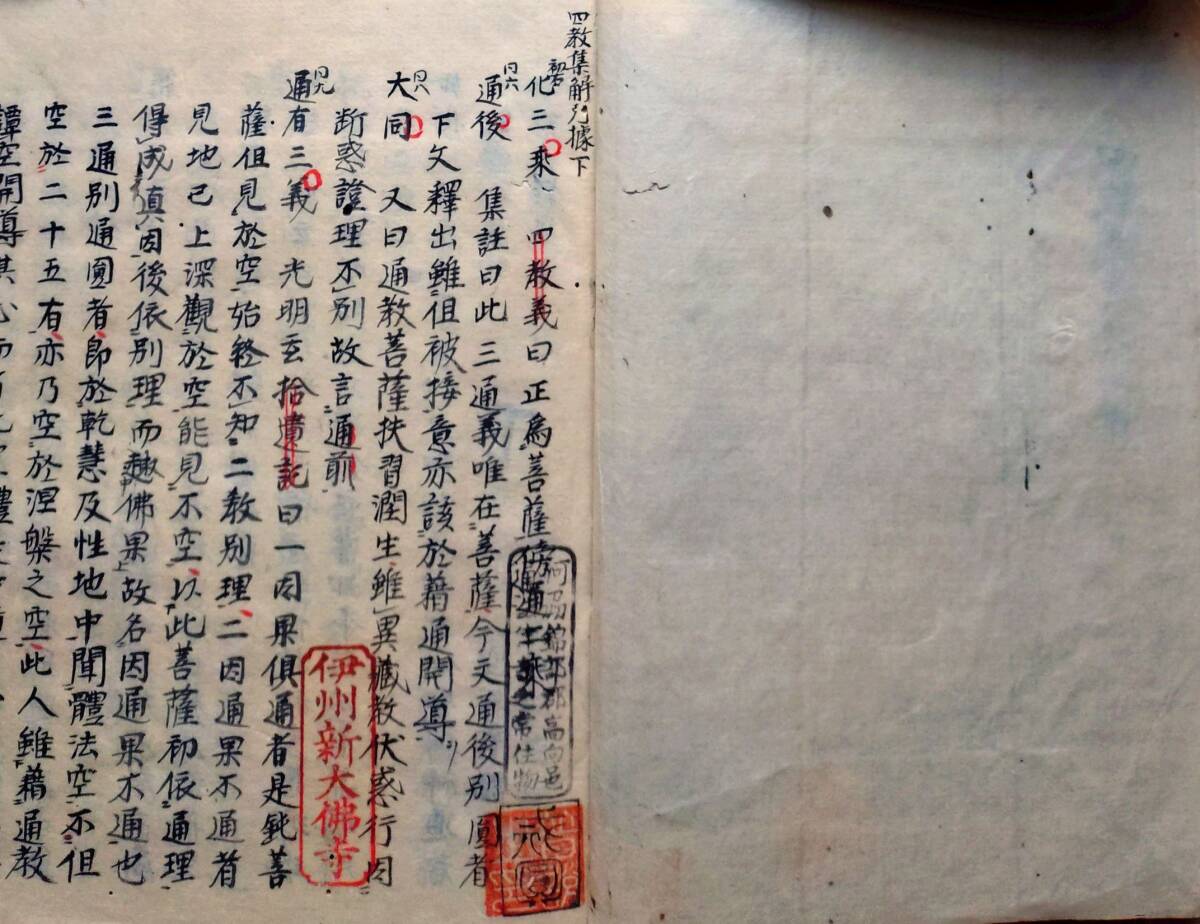 四教集解引據下
初右
化三乘 四教義曰正爲菩薩傍通二乘
同六
通後 集註曰此三通義唯在菩薩今文通後別圓者
下文釋出雖但被接意亦該於藉通開導
同八
大同 又曰通教菩薩扶習潤生雖異藏教伏惑行因
断惑證理不別故言通前
同九
通有三義 光明玄拾遺記曰一因果俱通者是鈍菩
薩但見於空始終不知二教別理二因通果不通者
見地已上深觀於空能見不空以此菩薩初依通理
得成真因後依別理而趣佛果故名因通果不通也
三通別通圓者即於乾慧及性地中聞體法空不但
空於二十五有亦乃空於涅槃之空此人雖藉通教
譚空開導其心而
河刕錦部郡高向邑
常住物
伊州新大佛寺